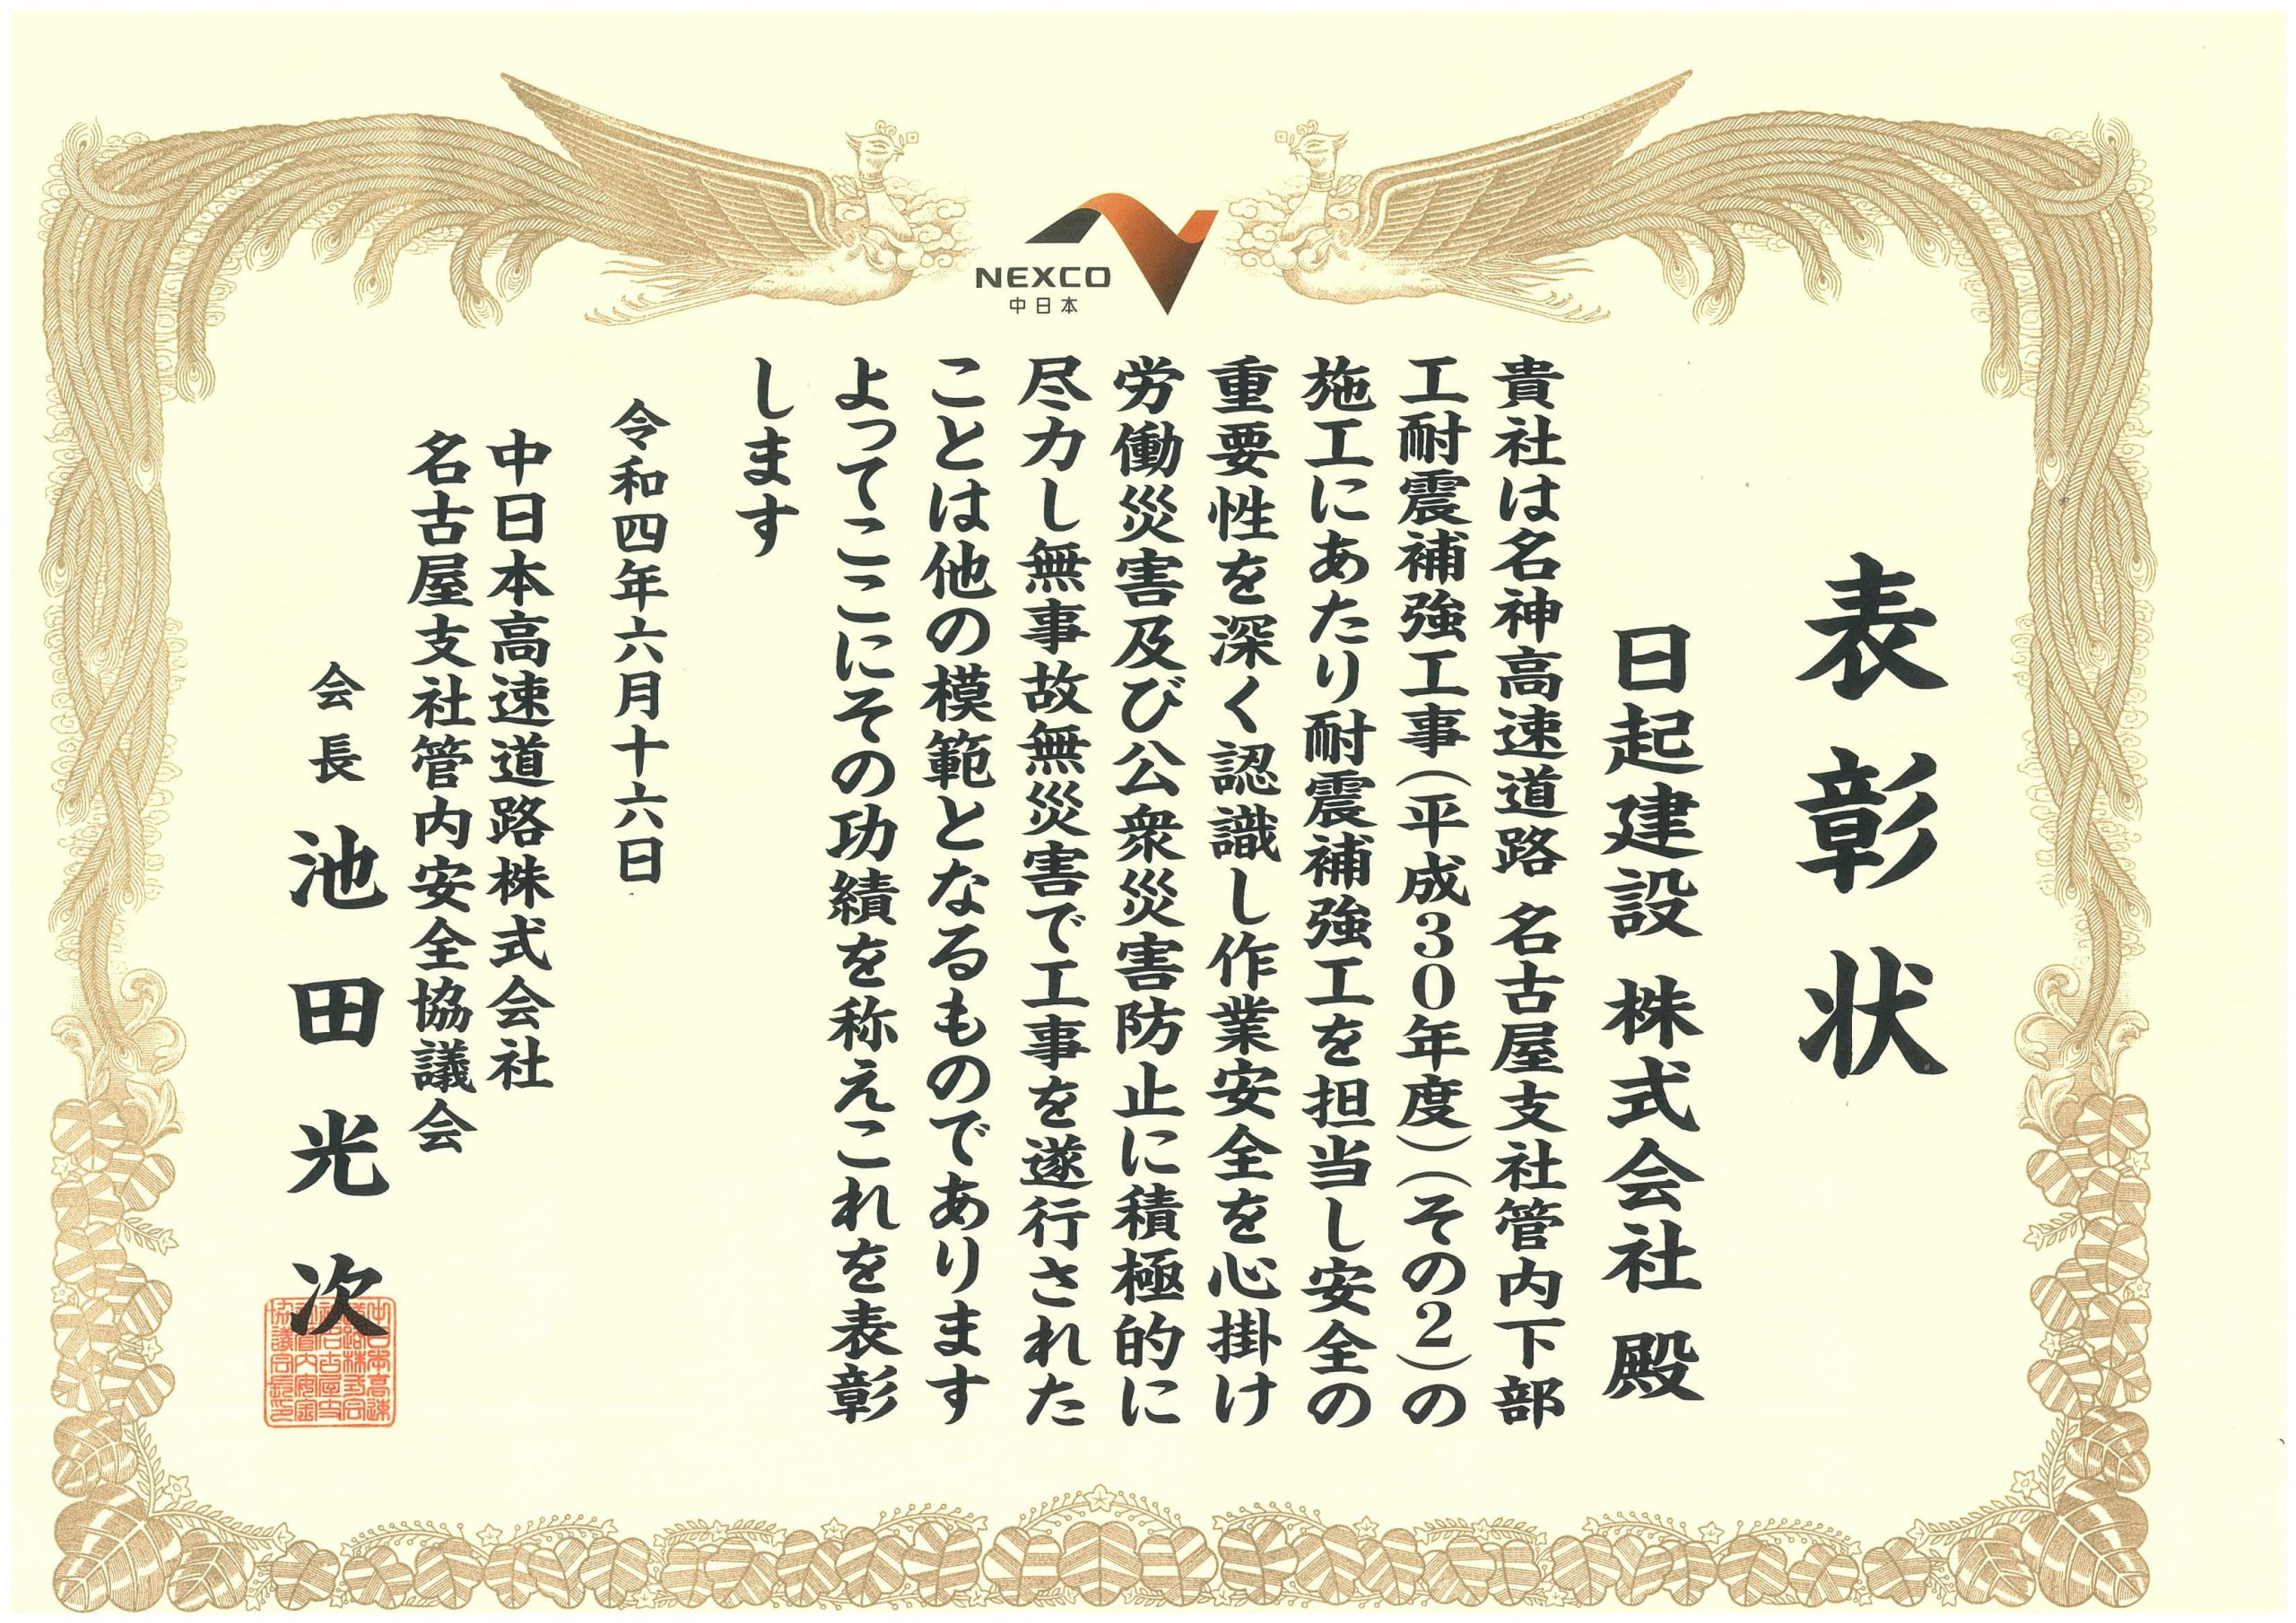 NEXCO
中日本
表彰状
日起建設 株式会社 殿
貴社は名神高速道路 名古屋支社管内下部
工耐震補強工事(平成30年度)(その2)の
施工にあたり耐震補強工を担当し安全の
重要性を深く認識し作業安全を心掛け
労働災害及び公衆災害防止に積極的に
尽力し無事故無災害で工事を遂行された
ことは他の模範となるものであります
よってここにその功績を称えこれを表彰
します
令和四年六月十六日
中日本高速道路株式会社
名古屋支社管内安全協議会
会長 池田光次
中日本高速
道路株式会
社名古屋支
社管内安全
協議会長印